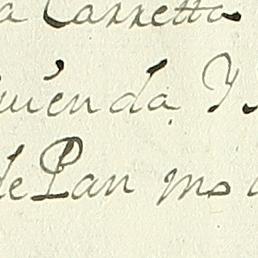 a Carretta
uienda Y
de Pan mo